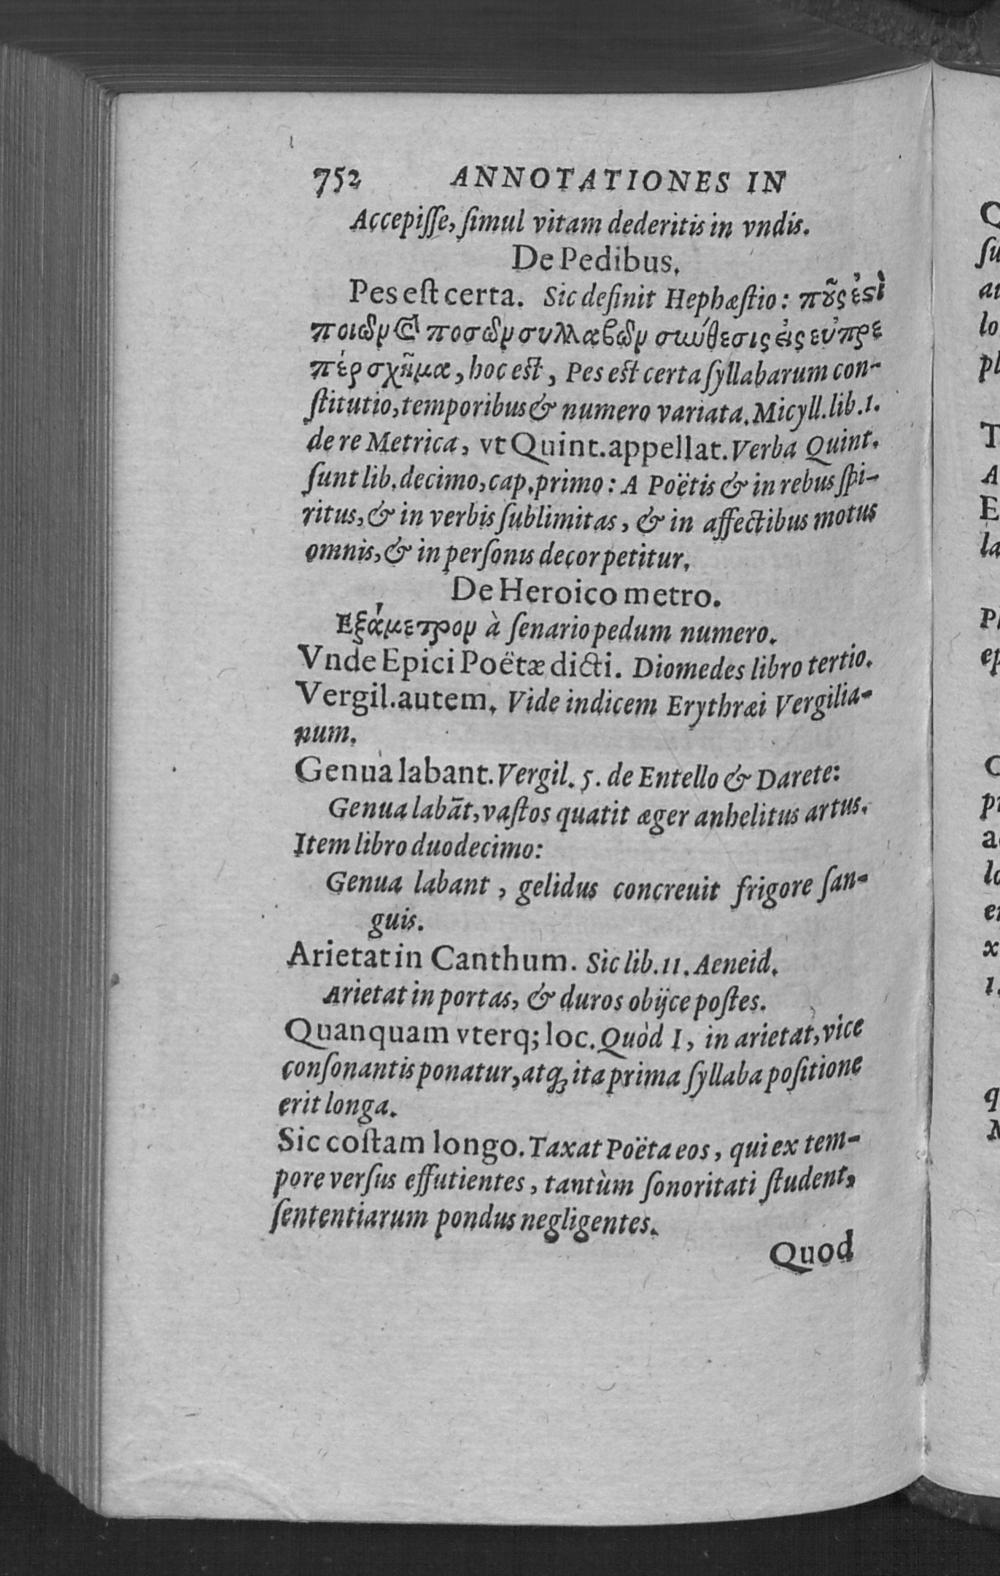 752 ANNOTATIONES IN
Accepiſſe, ſimul vitam dederitis in vndis.
De Pedibus.
Pes eſt certa. Sic definit Hephæſtio: ποῦς ἐστὶ
ποιῶν καὶ ποσῶν συλλαβῶν σύνθεσις εἰς εὐπρε
πὲς σχῆμα, hoc eſt, Pes eſt certa ſyllabarum con-
ſtitutio, temporibus & numero variata. Micyll. lib. 1.
de re Metrica, vt Quint. appellat. Verba Quint.
ſunt lib. decimo, cap. primo: A Poëtis & in rebus ſpi-
ritus, & in verbis ſublimitas, & in affectibus motus
omnis, & in perſonis decor petitur.
De Heroico metro.
Εξάμετρον à ſenario pedum numero.
Vnde Epici Poëtæ dicti. Diomedes libro tertio.
Vergil. autem. Vide indicem Erythræi Vergilia-
num.
Genua labant. Vergil. 5. de Entello & Darete:
Genua labāt, vaſtos quatit æger anhelitus artus.
Item libro duodecimo:
Genua labant, gelidus concreuit frigore ſan-
guis.
Arietat in Canthum. Sic lib. 11. Aeneid.
Arietat in portas, & duros obijce poſtes.
Quanquam vterq; loc. Quòd I, in arietat, vice
conſonantis ponatur, atq; ita prima ſyllaba poſitione
erit longa.
Sic coſtam longo. Taxat Poëta eos, qui ex tem-
pore verſus effutientes, tantùm ſonoritati ſtudent,
ſententiarum pondus negligentes.
Quod